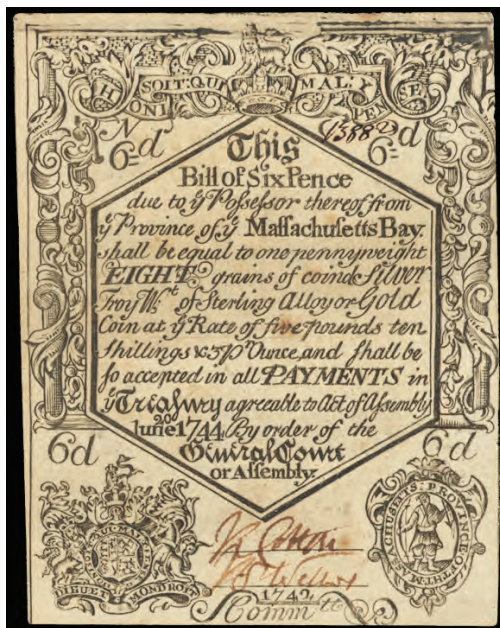 HONI SOIT: QUI MAL, Y PENSE
No 
6=d 6=d
This
Bill of Six Pence
due to ẙ Poſseſsor thereof from
ẙ Province of ẙ Maſsachusetts Bay.
shall be equal to one pennyweight
EIGHT grains of coind Silver
Troy Wt. of Sterling Alloy or Gold
Coin at ẙ Rate of five pounds ten
Shillings &3 pr Ounce, and ſhall be
ſo accepted in all PAYMENTS in
ẙ Treaſury agreeable to Act of Aſsembly
20
Iune 1744 By order of the
General Court
or Aſsembly:
6d 6d
DIEU ET MON DROIT
MASSACHUSETTS: PROVINCE OF THE
1742
Committee